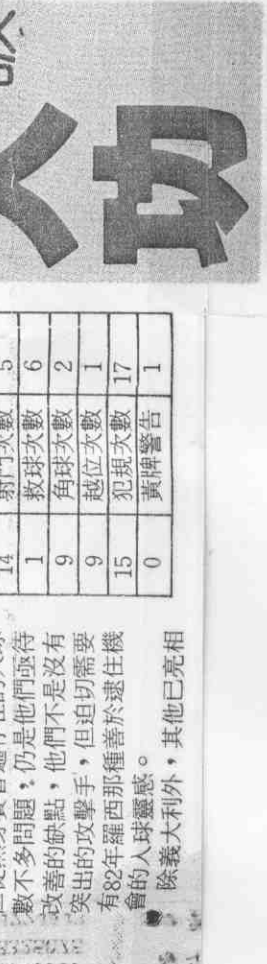 功
14 射門次數 5
1 救球次數 6
9 角球次數 2
9 越位次數 1
15 犯規次數 17
0 黃牌警告 1
數不多問題，仍是他們亟待
改善的缺點，他們不是沒有
突出的攻擊手，但迫切需要
有82年羅西那種善於逮住機
會的入球靈感。
除義大利外，其他已亮相